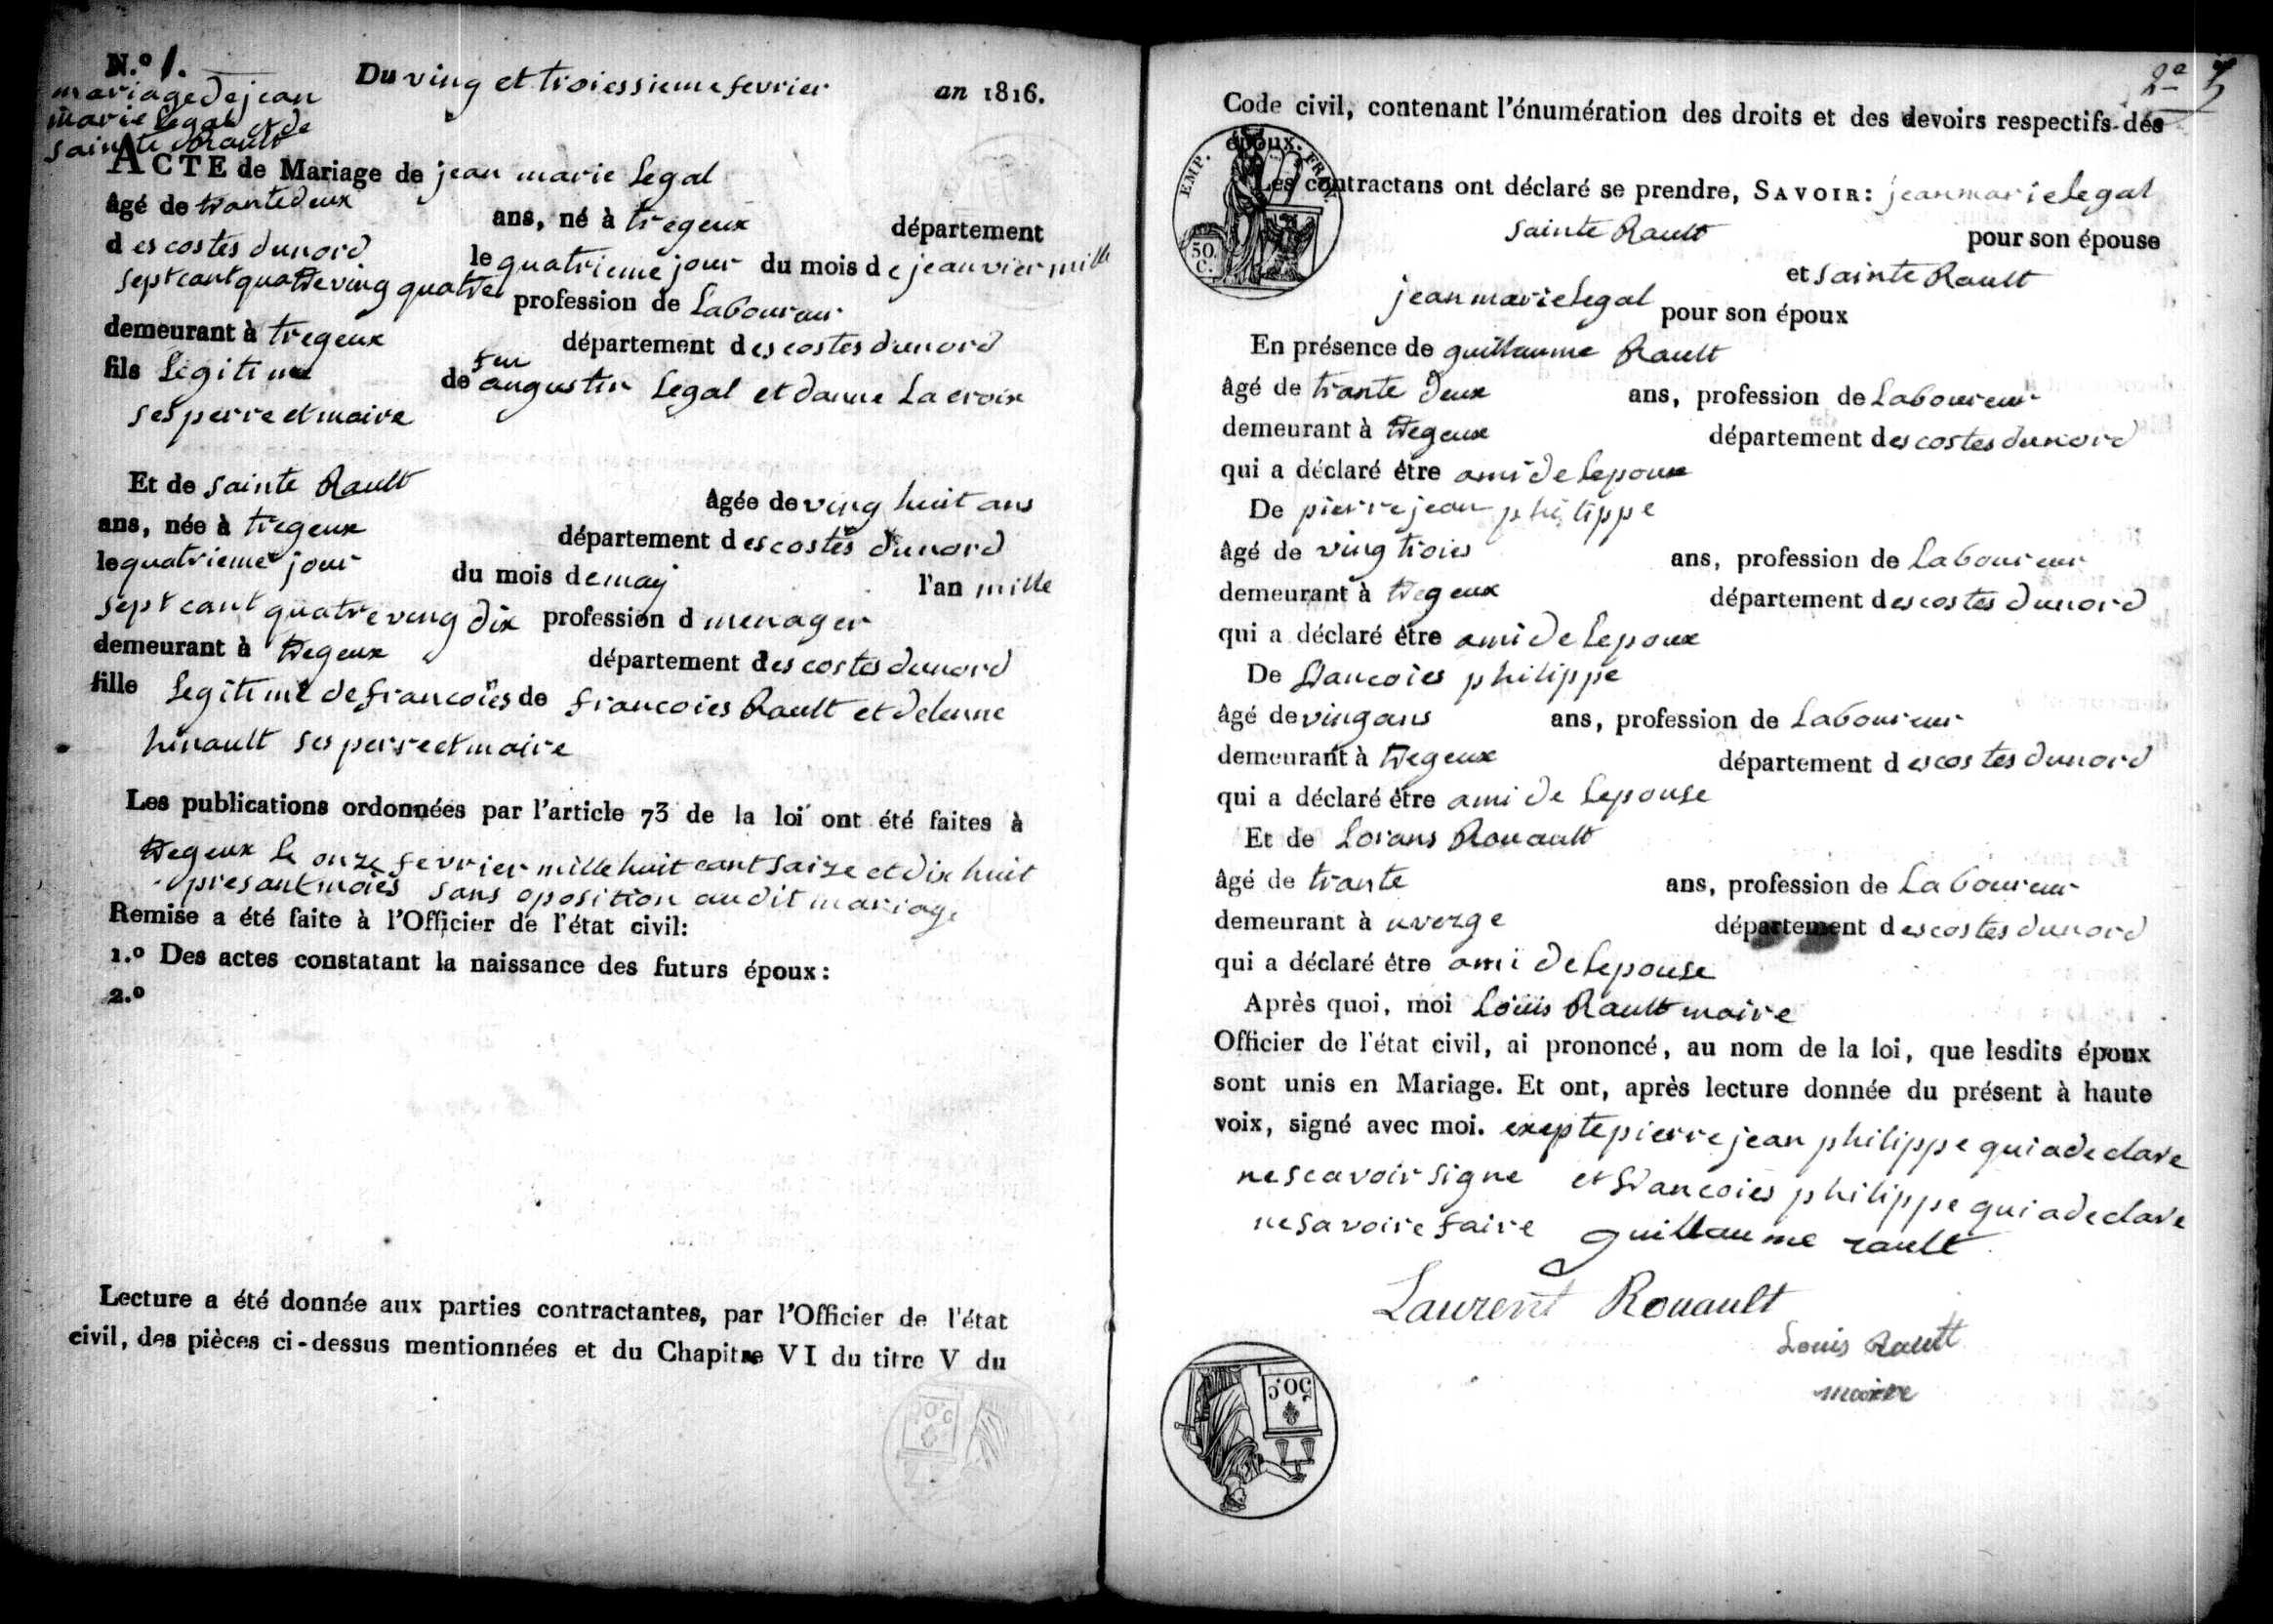 N.º 1.
mariage de jean
marie Legal et de
sainte Rault
Du ving et troiessieme fevrier an 1816.
ACTE de Mariage de jean marie Legal
âgé de trante deux ans, né à tregeux département
des costes dunord le quatrieme jour du mois de jeanvier mille
sept cant quatre ving quatre profession de Laboureur
demeurant à tregeux département des costes dunord
fils Legitime de feu augustin Legal et danne La croix
ses perre et maire
Et de sainte Rault âgée de ving huit ans
ans, née à tregeux département des costes dunord
le quatrieme jour du mois de may l'an mille
sept cant quatre ving dix profession d menager
demeurant à tregeux département des costes dunord
fille Legitime de francoies de francoies Rault et delenne
hinault ses perre et maire
Les publications ordonnées par l'article 73 de la loi ont été faites à
tregeux le onze fevrier mille huit cant saize et dix huit
presant moies sans oposition audit mariage
Remise a été faite à l'Officier de l'état civil:
1.º Des actes constatant la naissance des futurs époux:
2.º
Lecture a été donnée aux parties contractantes, par l'Officier de l'état
civil, des pièces ci-dessus mentionnées et du Chapitre VI du titre V du
2e
Code civil, contenant l'énumération des droits et des devoirs respectifs des
époux.
EMP. FRAN.
50.
C.
Les contractans ont déclaré se prendre, SAVOIR: jean marie legal
sainte Rault pour son épouse
et sainte Rault
jean marie legal pour son époux
En présence de guillaume Rault
âgé de trante deux ans, profession de Laboureur
demeurant à tregeux département des costes dunord
qui a déclaré être ami de lepoux
De pierre jean philippe
âgé de ving troies ans, profession de Laboureur
demeurant à tregeux département des costes dunord
qui a déclaré être ami de lepoux
De francoies philippe
âgé de ving ans ans, profession de Laboureur
demeurant à tregeux département des costes dunord
qui a déclaré être ami de lepouse
Et de Lorans Rouault
âgé de trante ans, profession de Laboureur
demeurant à uverge département des costes dunord
qui a déclaré être ami de lepouse
Après quoi, moi Louis Rault maire
Officier de l'état civil, ai prononcé, au nom de la loi, que lesdits époux
sont unis en Mariage. Et ont, après lecture donnée du présent à haute
voix, signé avec moi. exepte pierre jean philippe qui a declare
ne scavoir signe et francoies philippe qui a declare
ne savoire faire guillaume rault
Laurent Rouault
Louis Rault
maire
50.c